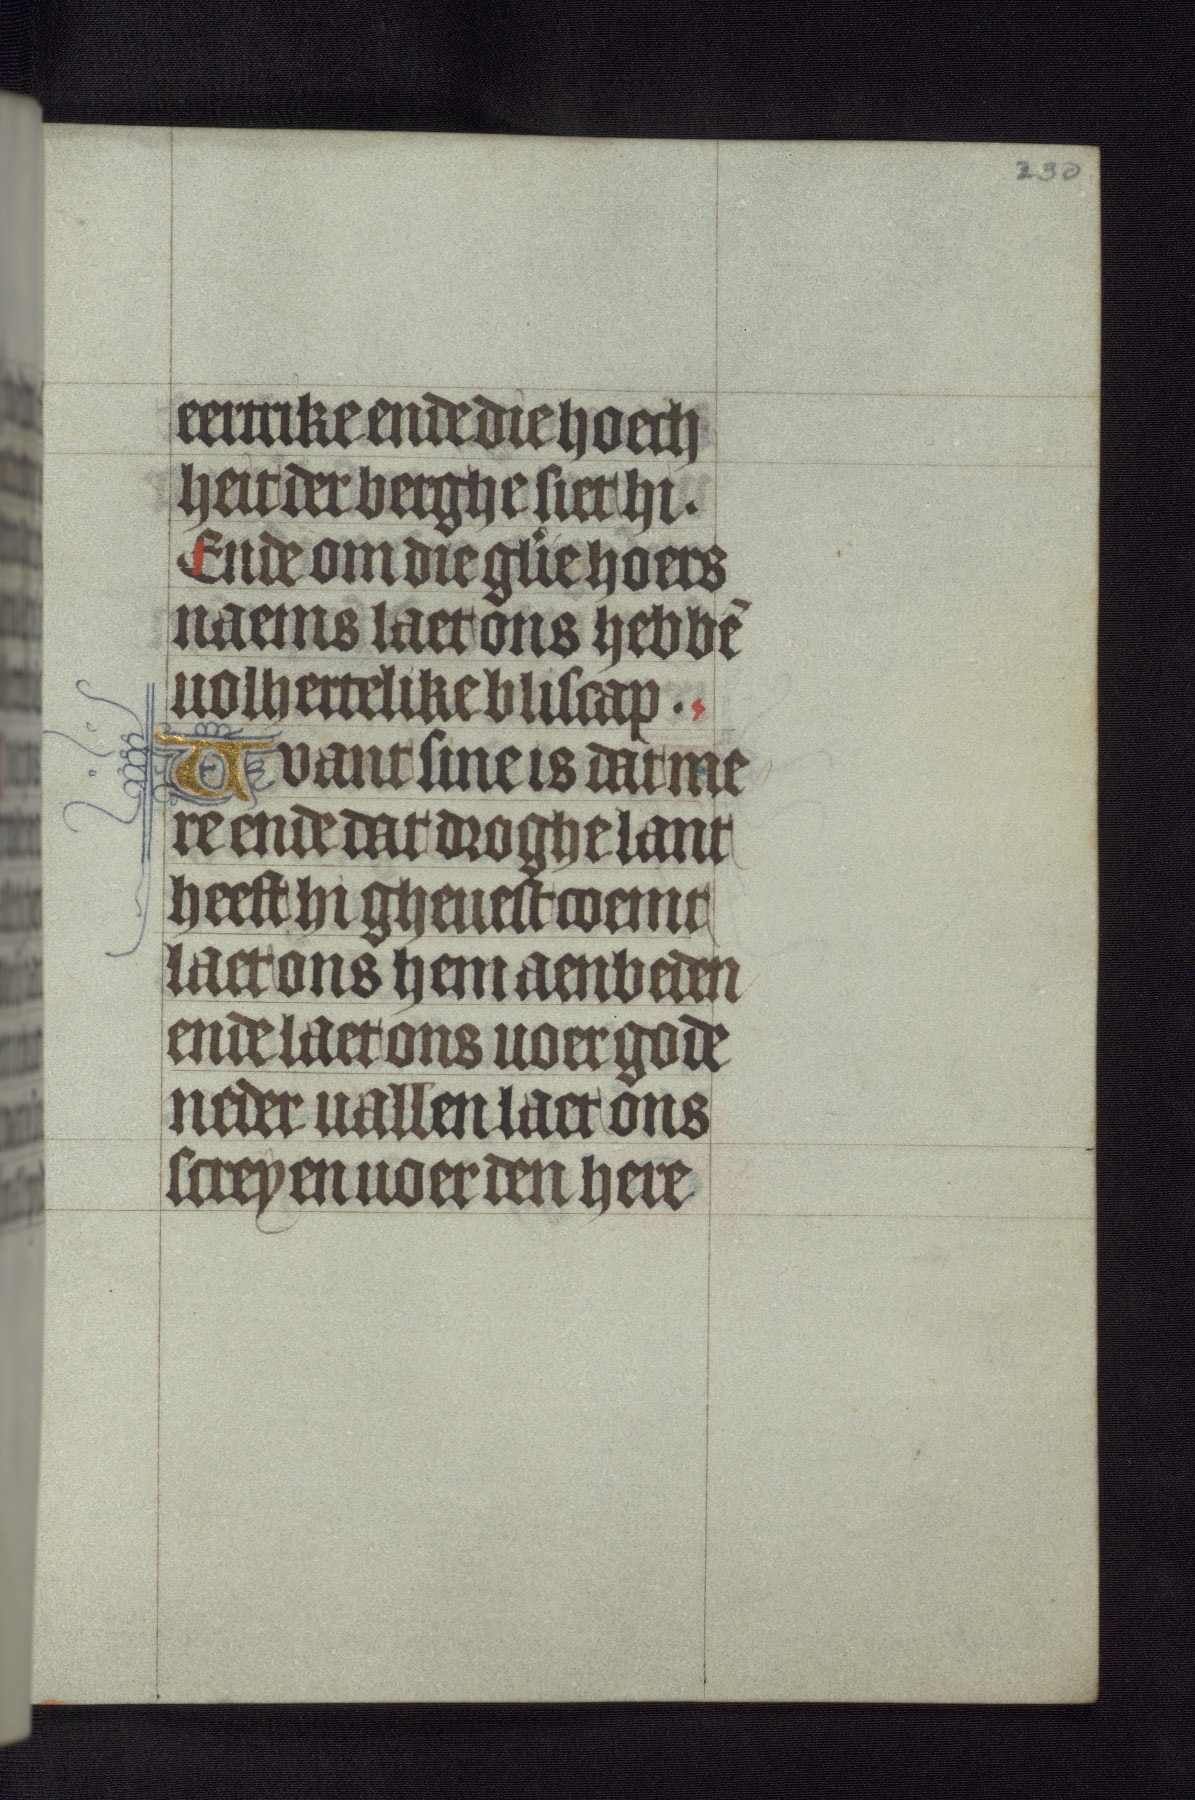 230
eertrike ende die hoech
heit der berghe siet hi.
Ende om die glīe hoers
naems laet ons hebbē
uolhertelike bliscap.
Uvant sine is dat me
re ende dat droghe lant
heeft hi gheuest coemt
laet ons hem aenbeden
ende laet ons uoer gode
neder uallen laet ons
screyen uoer den here